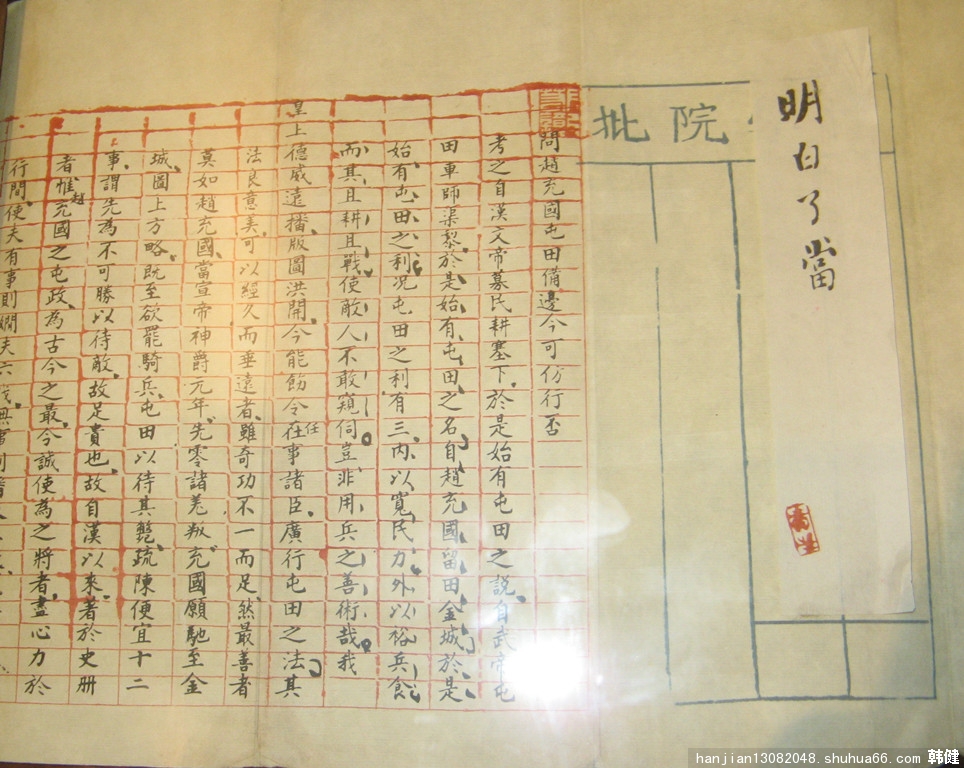 明白了當
院批
問趙充國屯田備邊今可仿行否
考之自漢文帝募民耕塞下於是始有屯田之說自武帝屯
田車師渠黎於是始有屯田之名自趙充國留田金城於是
始有屯田之利况屯田之利有三內以寬民力外以裕兵食
而其且耕且戰使敵人不敢窺伺豈非用兵之善術哉我
皇上德威遠播版圖洪開今能飭令在任事諸臣廣行屯田之法其
法良意美可以經久而垂遠者雖奇功不一而足然最善者
莫如趙充國當宣帝神爵元年先零諸羌叛充國願馳至金
城圖上方略既至欲罷騎兵屯田以待其斃疏陳便宜十二
事謂先為不可勝以待敵故足貴也故自漢以來著於史册
者惟趙充國之屯政為古今之最今誠使為之將者盡心力於
行間使夫有事則
hanjian13082048.shuhua66.com 韩健